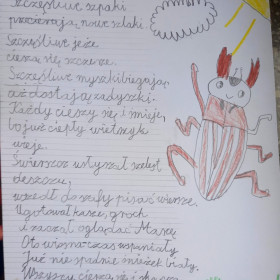 Szczęśliwe szpaki
przecierają nowe szlaki.
Szczęśliwe jeże
cieszą się szczerze.
Szczęśliwe myszki biegają,
aż dostają zadyszki.
Każdy cieszy się i śmieje,
bo już ciepły wietrzyk
wieje.
Świerszcz usłyszał szelest
deszczu,
wszedł do szafy pisać wiersze.
Ugotował kaszę, groch
i zaczął oglądać Marsz
Oto wiosna czas wspaniały
Już nie spadnie śnieżek biały.
Wszyscy cieszą się i